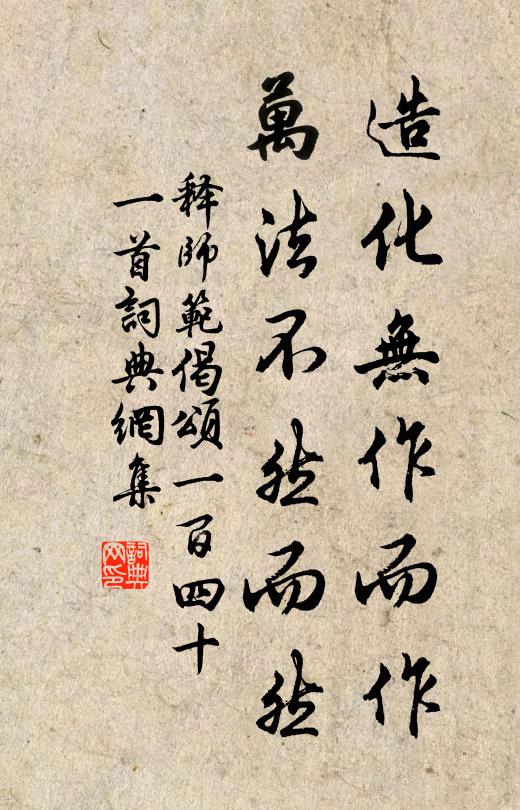 造化無作而作
萬法不然而然
释師範偈頌一百四十
一首詞典網集
詞典网印